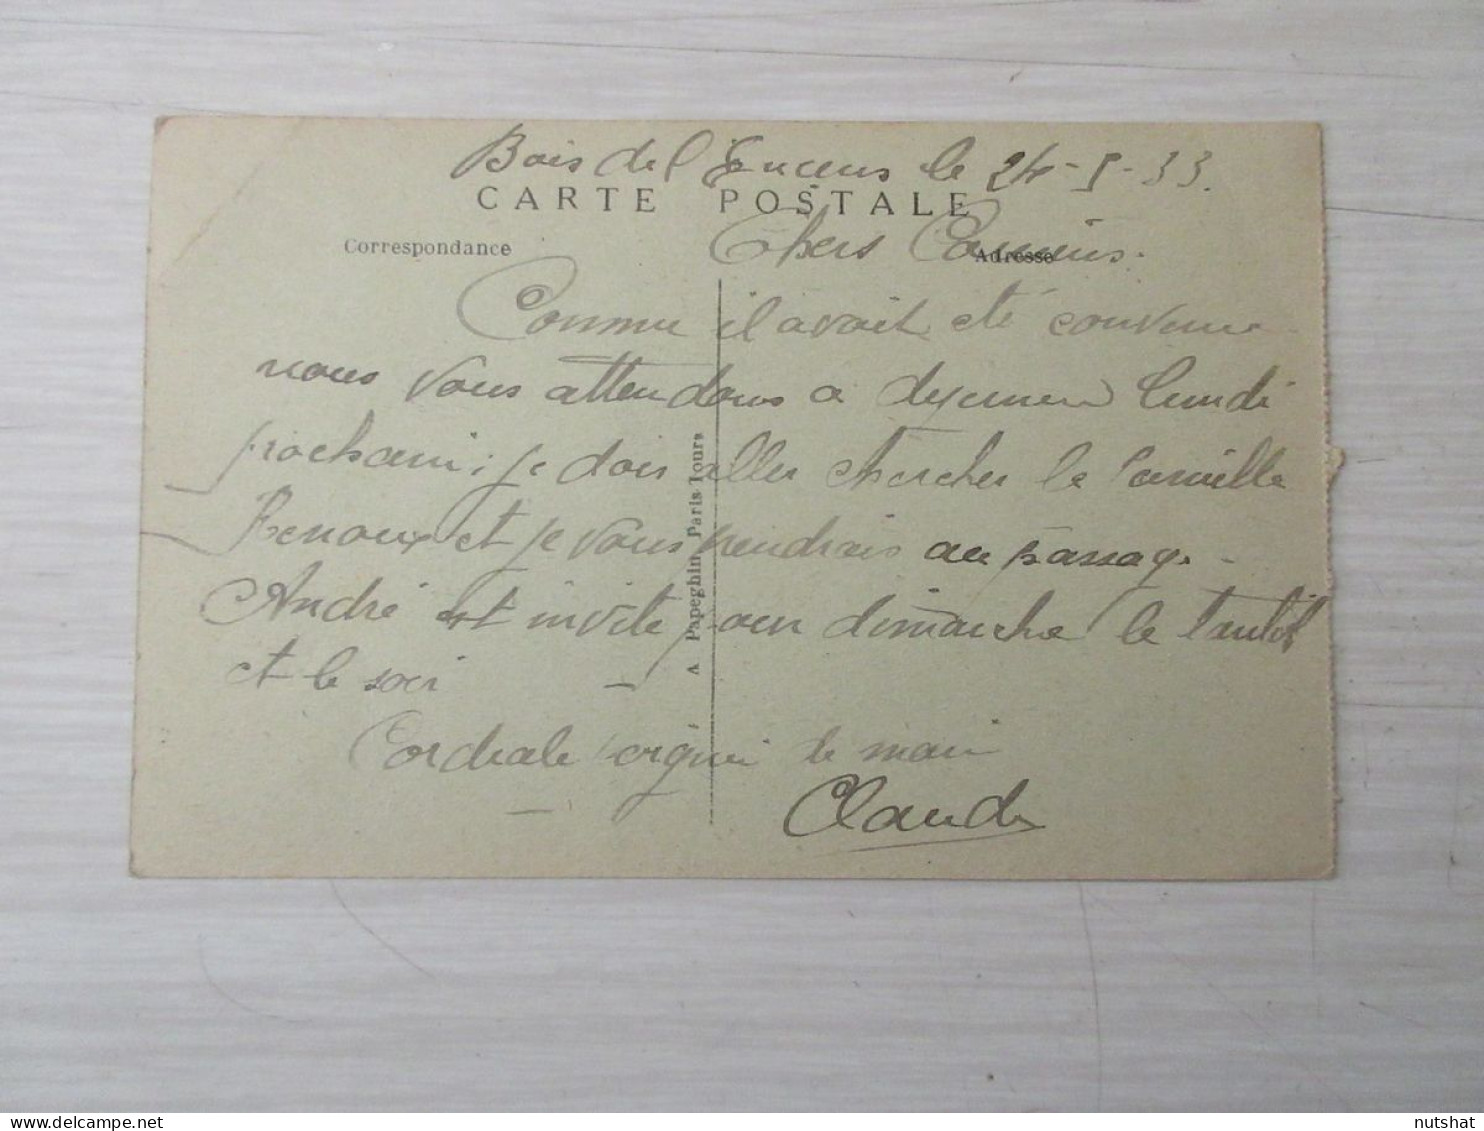 Bois de l'Encens le 24-5-33.
CARTE POSTALE
Correspondance
Adresse
Chers Cousins.
Comme il avait été convenu
nous vous attendons a dejeuner lundi
prochain; je dois aller chercher la famille
Renoux et je vous prendrais au passage.
André est invité pour dimanche le tantôt
et le soir
Cordiale poignée de main
Claude
A Papeghin Paris-Tours
nutshat